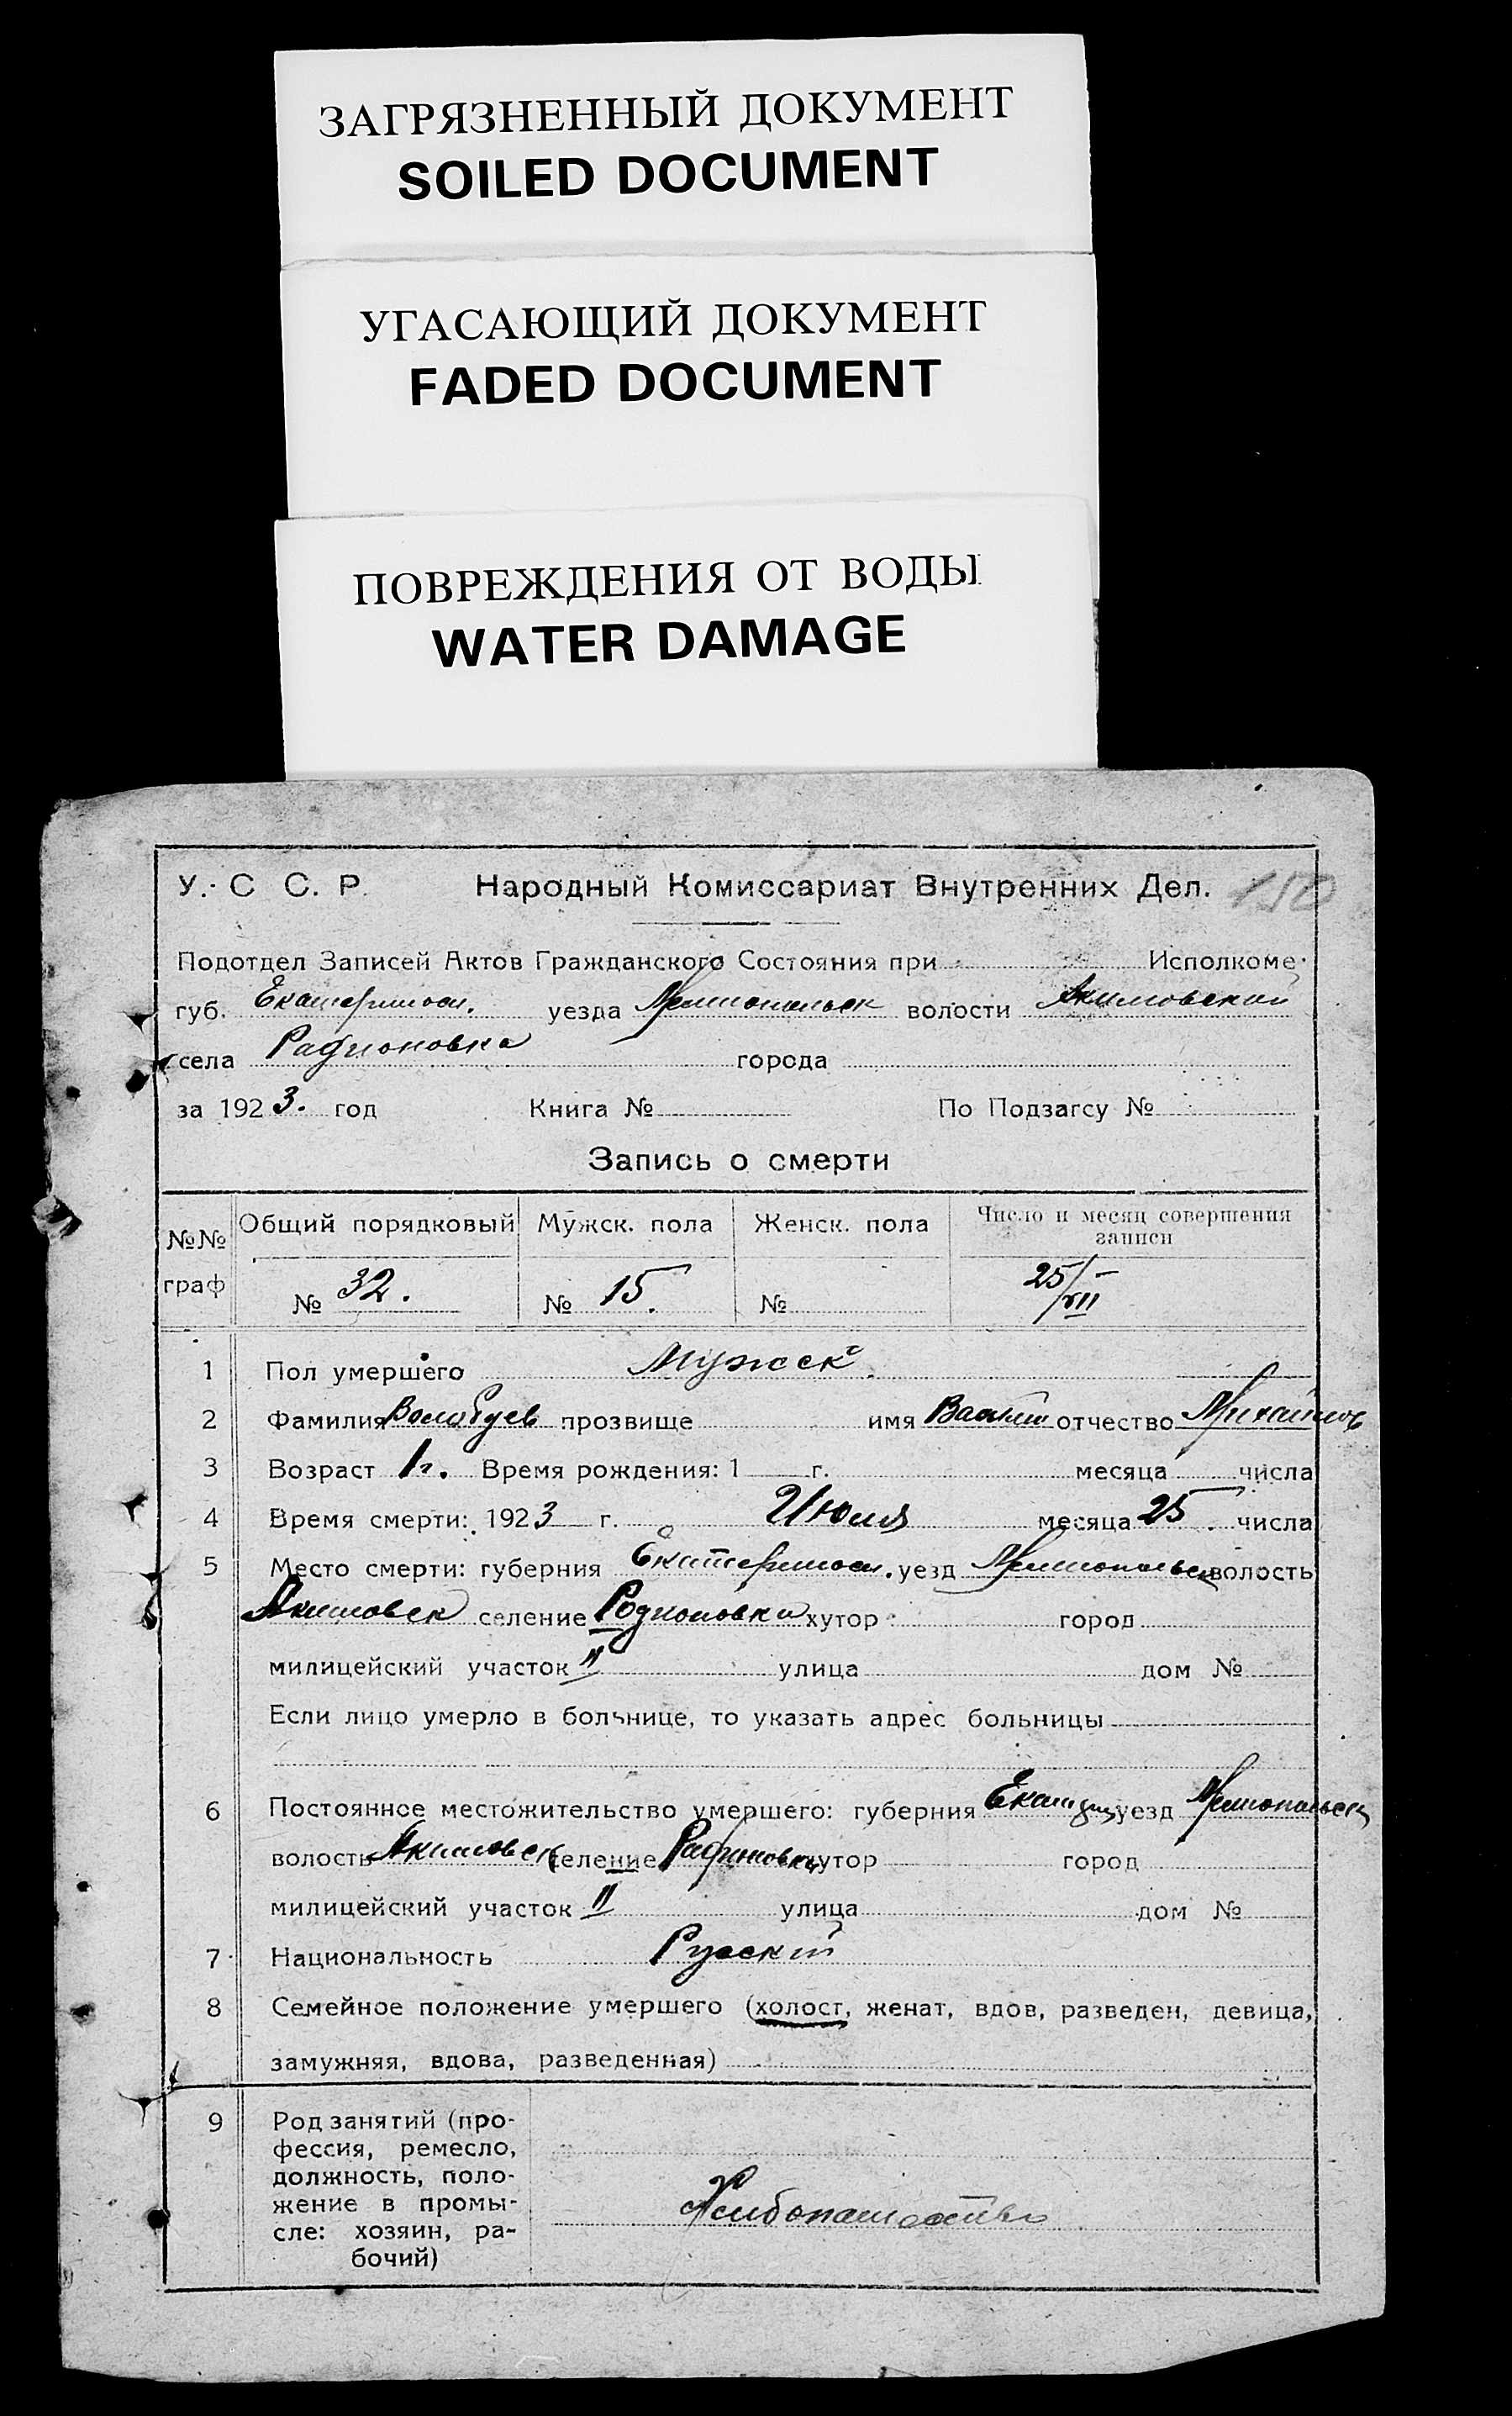 ЗАГРЯЗНЕННЫЙ ДОКУМЕНТ
SOILED DOCUMENT
УГАСАЮЩИЙ ДОКУМЕНТ
FADED DOCUMENT
ПОВРЕЖДЕНИЯ ОТ ВОДЫ
WATER DAMAGE
У. С С. Р. Народный Комиссариат Внутренних Дел. 150
Подотдел Записей Актов Гражданского Состояния при Исполкоме
губ. Екатериносл. уезда Мелитопольск волости Акимовской
села Радионовка города
за 1923. год Книга № По Подзагсу №
Запись о смерти
№№ граф Общий порядковый Мужск. пола Женск. пола Число и месяц совершения
записи
№ 32. № 15. № 25/VII
1 Пол умершего Мужск
2 Фамилия прозвище имя отчество Михайлов
3 Возраст 1 г. Время рождения: 1 г. месяца числа
4 Время смерти: 1923 г. Июля месяца 25 числа
5 Место смерти: губерния Екатериносл. уезд Мелитопольск волость
Акимовск селение Родионовка хутор город
милицейский участок II улица дом №
Если лицо умерло в больнице, то указать адрес больницы
6 Постоянное местожительство умершего: губерния уезд Мелитопольск
волость Акимовск селение Радионовка хутор город
милицейский участок II улица дом №
7 Национальность Русский
8 Семейное положение умершего (холост, женат, вдов, разведен, девица,
замужняя, вдова, разведенная)
9 Род занятий (про-
фессия, ремесло,
должность, поло-
жение в промы-
сле: хозяин, ра-
бочий)
Хлебопашество